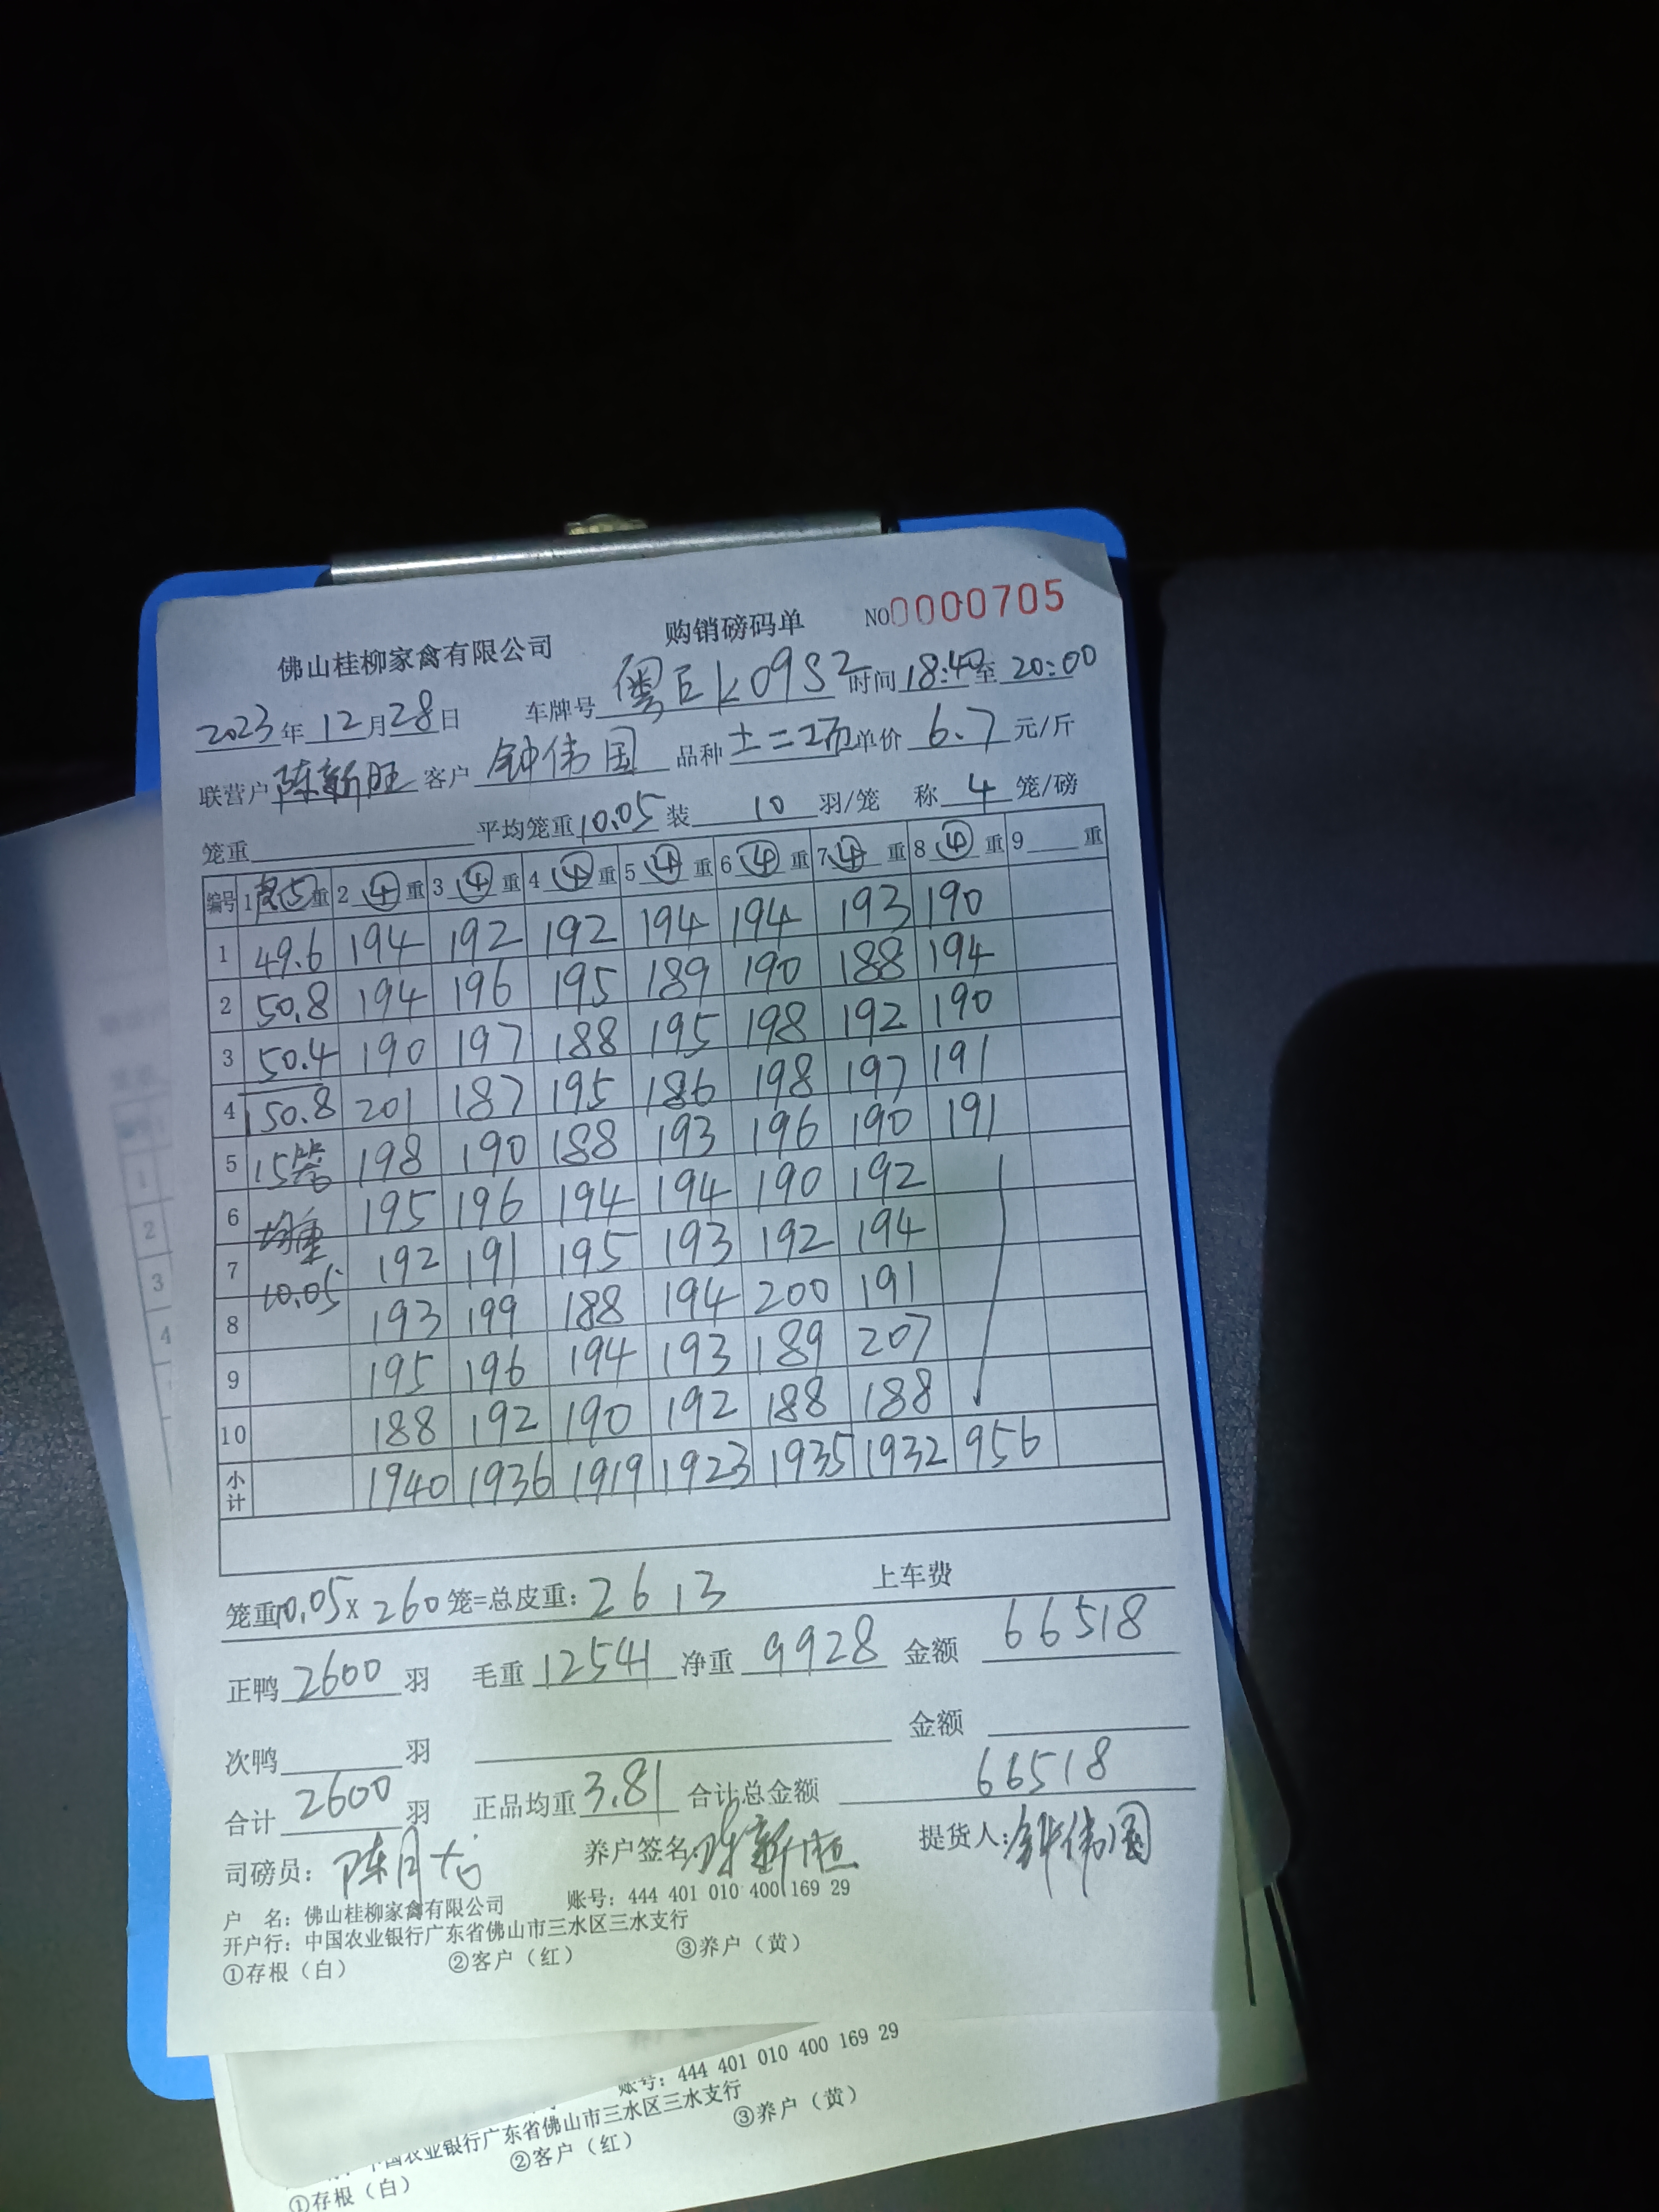 佛山桂柳家禽有限公司 购销磅码单 NO0000705
2023年12月28日 车牌号粤E K09S2 时间18:40至20:00
联营户陈新旺 客户钟伟国 品种土二 单价6.7元/斤
笼重 平均笼重10.05装10羽/笼 称4笼/磅
编号 1⑤重 2④重 3④重 4④重 5④重 6④重 7④重 8④重 9重
1 49.6 194 192 192 194 194 193 190
2 50.8 194 196 195 189 190 188 194
3 50.4 190 197 188 195 198 192 190
4 150.8 201 187 195 186 198 197 191
5 15笼 198 190 188 193 196 190 191
6 均重 195 196 194 194 190 192
7 10.05 192 191 195 193 192 194
8 193 199 188 194 200 191
9 195 196 194 193 189 207
10 188 192 190 192 188 188
小计 1940 1936 1919 1923 1935 1932 956
笼重10.05x260笼=总皮重:2613 上车费
正鸭2600羽 毛重12541净重9928金额66518
次鸭羽 金额
合计2600羽 正品均重3.81合计总金额66518
司磅员: 陈月 养户签名:陈新旺 提货人:钟伟国
户 名: 佛山桂柳家禽有限公司 账号: 444 401 010 400 169 29
开户行: 中国农业银行广东省佛山市三水区三水支行
①存根（白） ②客户（红） ③养户（黄）
账号: 444 401 010 400 169 29
中国农业银行广东省佛山市三水区三水支行
①存根（白） ②客户（红） ③养户（黄）